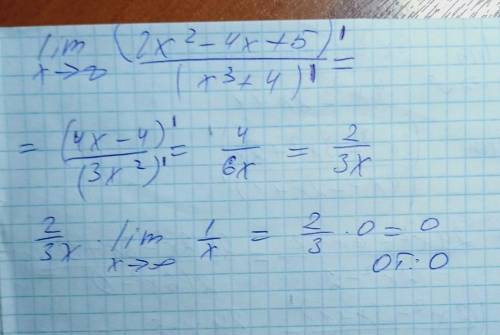 lim x→∞ (2x² - 4x + 5)' / (x³ + 4)' =
= (4x - 4)' / (3x²)' = 4 / 6x = 2 / 3x
2 / 3x · lim x→∞ 1 / x = 2 / 3 · 0 = 0
от: 0